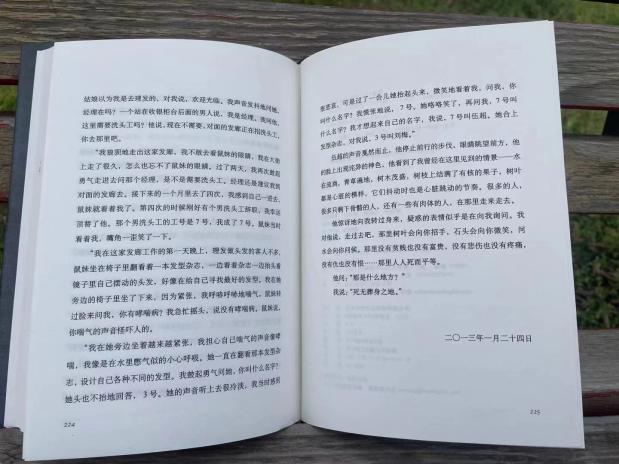 姑娘以为我是去理发的，对我说，欢迎光临。我声音发抖地问她，
经理在吗？一个站在收银柜台后面的男人说，我是经理。我问他，
这里需要洗头工吗？他说，现在不需要，对面的发廊正在招洗头工，
你去那里吧。
“我狼狈地走出这家发廊，我不敢去看鼠妹的眼睛。我在大街
上走了很久，怎么也忘不了鼠妹的眼睛。过了两天，我再次鼓起
勇气走进去问那个经理，是不是需要洗头工。经理还是建议我到
对面的发廊去。接下来的一个月里去了四次，我感到自己一进去，
鼠妹就看着我了。第四次的时候刚好有个男洗头工辞职，我幸运
顶替了他。那个男洗头工的工号是7号，我成了7号。鼠妹当时
看着我，嘴角一歪笑了一下。
“我在这家发廊工作的第一天晚上，理发做头发的客人不多，
鼠妹坐在椅子里翻看着一本发型杂志，一边看着杂志一边抬头看
镜子里自己摆动的头发，好像在给自己寻找最好的发型。我在她
旁边的椅子里坐了下来，因为紧张，我呼哧呼哧地喘气。鼠妹转
过脸来问我，你有哮喘病？我急忙摇头，说没有哮喘病。鼠妹说，
你喘气的声音怪吓人的。
“我在她旁边坐着越来越紧张，我担心自己喘气的声音像哮
喘，我像是在水里憋气似的小心呼吸。她一直在翻看那本发型杂
志，设计自己各种不同的发型。我鼓起勇气问她，你叫什么名字？
她头也不抬地回答，3号。她的声音听上去很冷淡，我当时感到
224
很悲哀，可是过了一会儿她抬起头来，微笑地看着我，问我，你
叫什么名字？我慌张地说，7号。她咯咯笑了，再问我，7号叫
什么名字？我才想起来自己的名字，我说，7号叫伍超。她合上
发型杂志，对我说，3号叫刘梅。”
伍超的声音戛然而止，他停止前行的步伐，眼睛眺望前方，他
的脸上出现诧异的神色，他看到了我曾经在这里见到的情景——水
在流淌，青草遍地，树木茂盛，树枝上结满了有核的果子，树叶
都是心脏的模样，它们抖动时也是心脏跳动的节奏。很多的人，
很多只剩下骨骼的人，还有一些有肉体的人，在那里走来走去。
他惊讶地向我转过身来，疑惑的表情似乎是在向我询问。我
对他说，走过去吧，那里树叶会向你招手，石头会向你微笑，河
水会向你问候。那里没有贫贱也没有富贵，没有悲伤也没有疼痛，
没有仇也没有恨……那里人人死而平等。
他问：“那是什么地方？”
我说：“死无葬身之地。”
二〇一三年一月二十四日
225